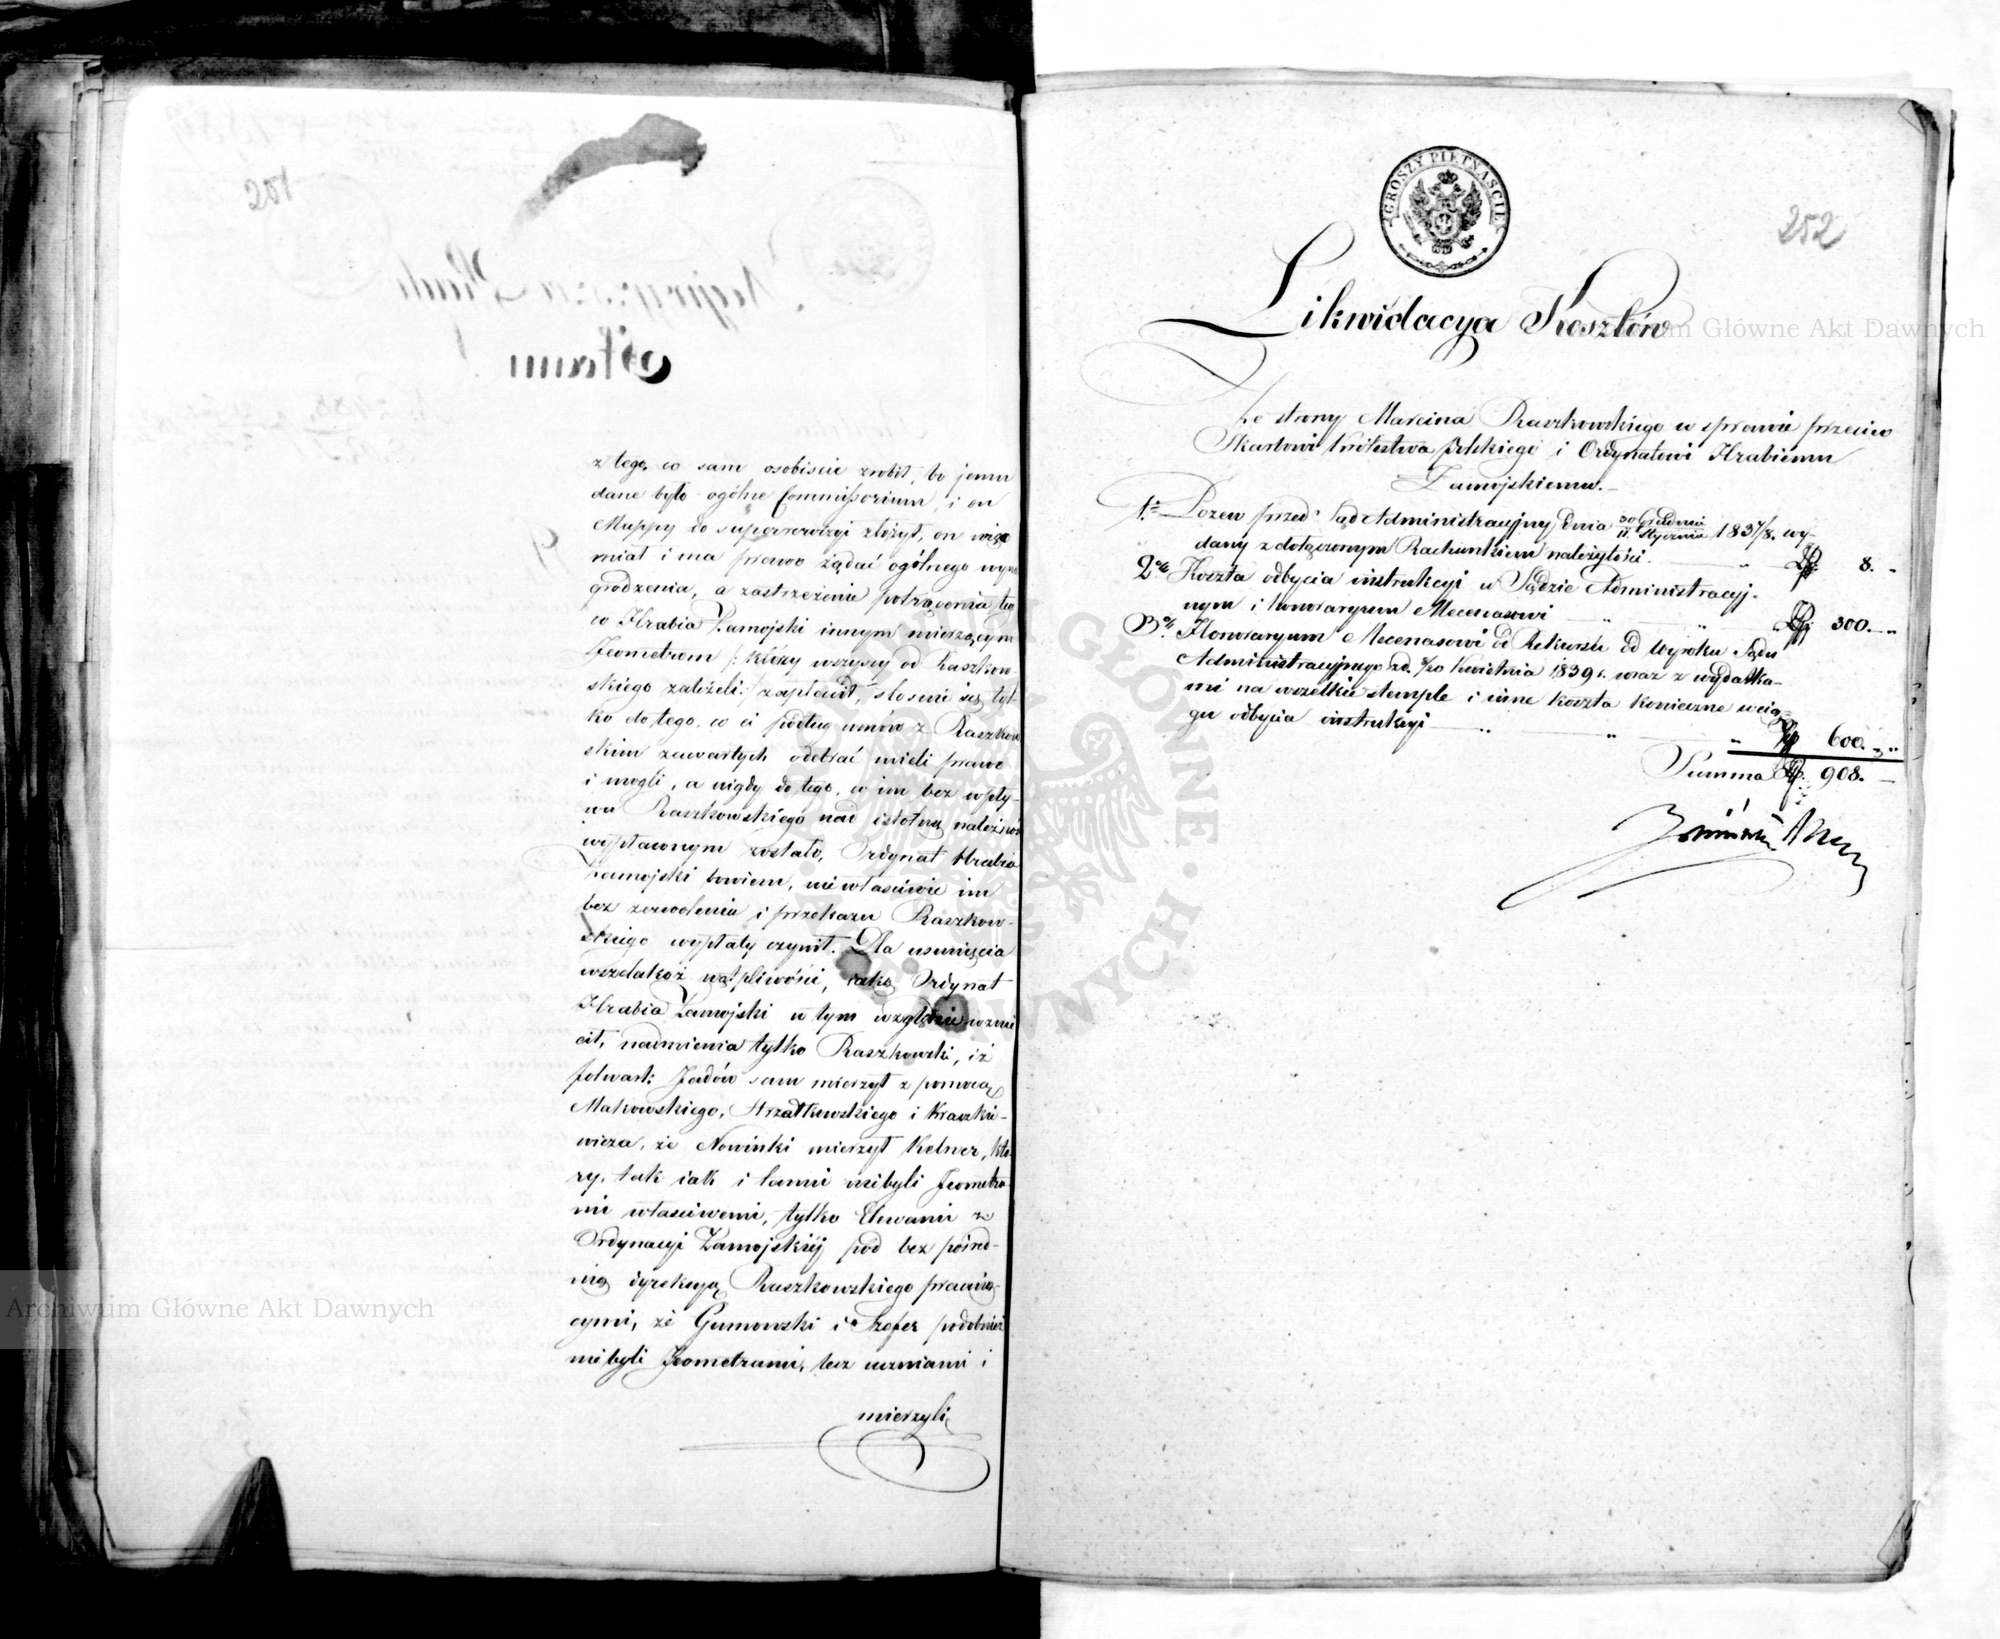 z tego, co sam osobiscie zrobił, bo jemu
dane było ogólne Commissorium, i on
Mappy do superrewizyi złożył, on więc
miał i ma prawo żądać ogólnego wyna
grodzenia, a zastrzeżenie potrącenia tego
co Hrabia Zamojski innym mierzącym
Jeometrom /: którzy wszyscy od Raszkow-
skiego zależeli :/ zapłacił, stosuie się tyl
ko do tego, co ci podług umów z Raszkow
skim zawartych odebrać mieli prawo
i mogli, a nigdy do tego, co im bez wpły-
wu Raszkowskiego nad istotną należność
wypłaconym zostało, Ordynat Hrabia
Zamojski bowiem, niewłaściwie im
bez zezwolenia i przekazu Raszkow-
skiego wypłaty czynił. Dla usunięcia
wszelakoż wątpliwości, iaką Ordynat
Hrabia Zamojski w tym względzie wznie
cił, nadmienia tylko Raszkowski, iż
folwark Jadów sam mierzył z pomocą
Makowskiego, Strzałkowskiego i Kraszkie-
wicza, że Nowinki mierzył Kelner, któ
ry, tak iak i tamci niebyli Jeometra
mi właściwemi, tylko Elewami z
Ordynacyi Zamojskiéj pod bez pośred-
nią dyrekcyą Raszkowskiego pracuią-
cymi, że Gumowski i Szefer podobnież
niebyli Jeometrami, lecz uczniami i
mierzyli
ZGROSZY PIĘTNAŚCIE
252
Likwidacya Kosztów
Ze strony Marcina Raszkowskiego w sprawie przeciw
Skarbowi Królestwa Polskiego i Ordynatowi Hrabiemu
Zamojskiemu.
1. Pozew przed Sąd Administracyjny dnia 30 Grudnia / 11 Stycznia 1837/8. wy-
dany z dołączonym Rachunkiem należytości. " 8. "
2. Koszta odbycia instrukcyi w Sądzie Administracyj-
nym i honoraryum Mecenasowi " " 300. "
3. Honoraryum Mecenasowi od Rekursu od Wyroku Sądu
Administracyjnego z d. 8/20 Kwietnia 1839 r. wraz z wydatka-
mi na wszelkie stemple i inne koszta konieczne w cią-
gu odbycia instrukcyi " " " 600. "
Summa 908.
Archiwum Główne Akt Dawnych
Archiwum Główne Akt Dawnych